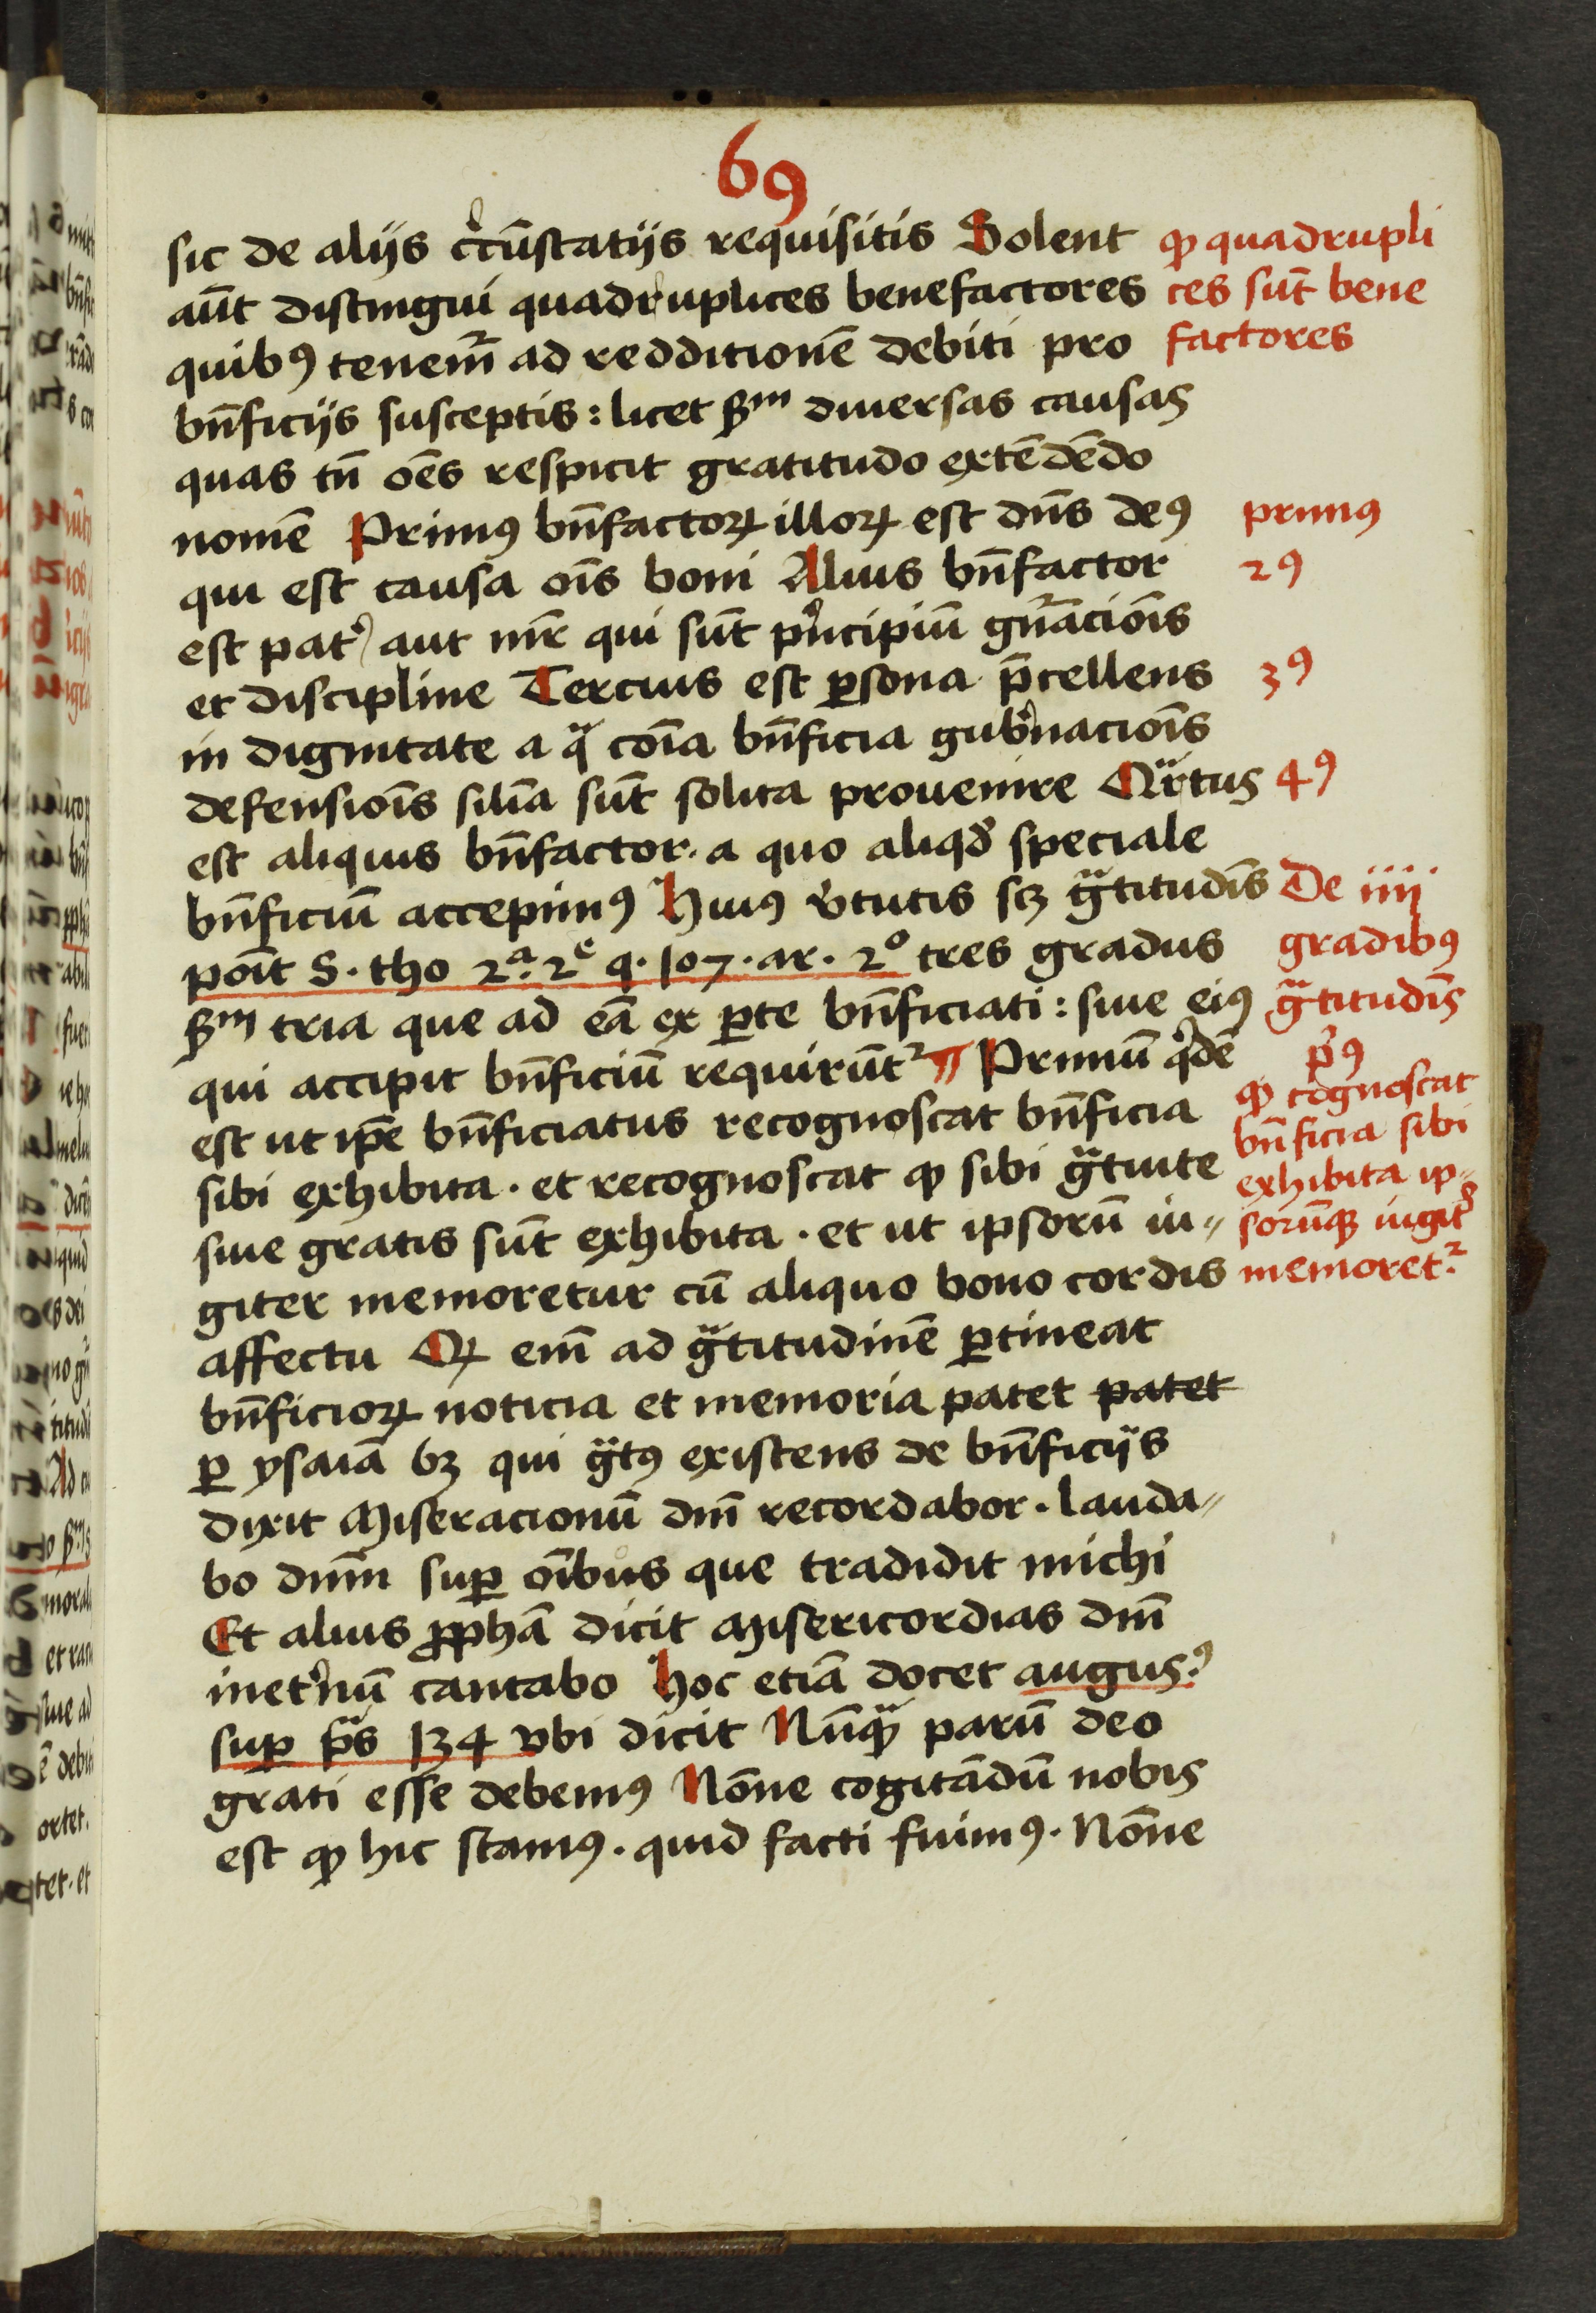 69
sic de alijs cͥcūstātijs requisitis Solent
aūt distingui quadruplices benefactores
quibꝰ tenem̄ ad redditionē debiti pro
bn̄ficijs susceptis : licet ẞm diuersas causas
quas tn̄ oēs respicit gratitudo extēdēdo
nomē Primꝰ bn̄factoꝝ illoꝝ est dn̄s deꝰ
qui est causa oīs boni Alius bn̄factor
est pat᾽ aut mr̄ qui sūt pͥncipiū gn̄acioīs
et discipline Tercius est ꝑsona p̄cellens
in dignitate a qͣ coīa bn̄ficia gub᾽nacioīs
defensioīs silīa sūt solita prouenire Qͣrtus
est aliquis bn̄factor. a quo aliqd᾽ speciale
bn̄ficiū accepimꝰ Huiꝰ v᾽tutis scꝫ gͣtitudīs
poīt S. tho 2ª. 2ᵉ q. 107. ar. 2º tres gradus
ẞm tria que ad eā ex ꝑte bn̄ficiati : siue eiꝰ
qui accipit bn̄ficiū requirūt᷑ ¶ Primū qͥdē
est ut ip̄e bn̄ficiatus recognoscat bn̄ficia
sibi exhibita . et recognoscat ꝙ sibi gͣtuite
siue gratis sūt exhibita . et ut ipsorū iu〃
giter memoretur cū aliquo bono cordis
affectu Qꝝ em̄ ad gͣtitudinē ꝑtineat
bn̄ficioꝝ noticia et memoria patet patet
ꝑ ysaiā 63 qui gͣtꝰ existens de bn̄ficijs
dixit Miseracionū dn̄i recordabor . lauda〃
bo dn̄m suꝑ oībus que tradidit michi
Et alius ꝓphā dicit Misericordias dn̄i
inet᾽nū cantabo Hoc etiā docet augus.ꝰ
suꝑ pͣs 134 vbi dicit Nūqͣ parū deo
grati esse debemꝰ Nōne cogitādū nobis
est ꝙ hic stamꝰ . quid facti fuimꝰ . Nōne
ꝙ quadrupli
ces sūt bene
factores
primꝰ
2ꝰ
3ꝰ
4ꝰ
De iiii
gradibꝰ
gͣtitudīs
pͥꝰ
ꝙ cognoscat
bn̄ficia sibi
exhibita ip〃
sorūqꝫ iugit᾽
memoret᷑